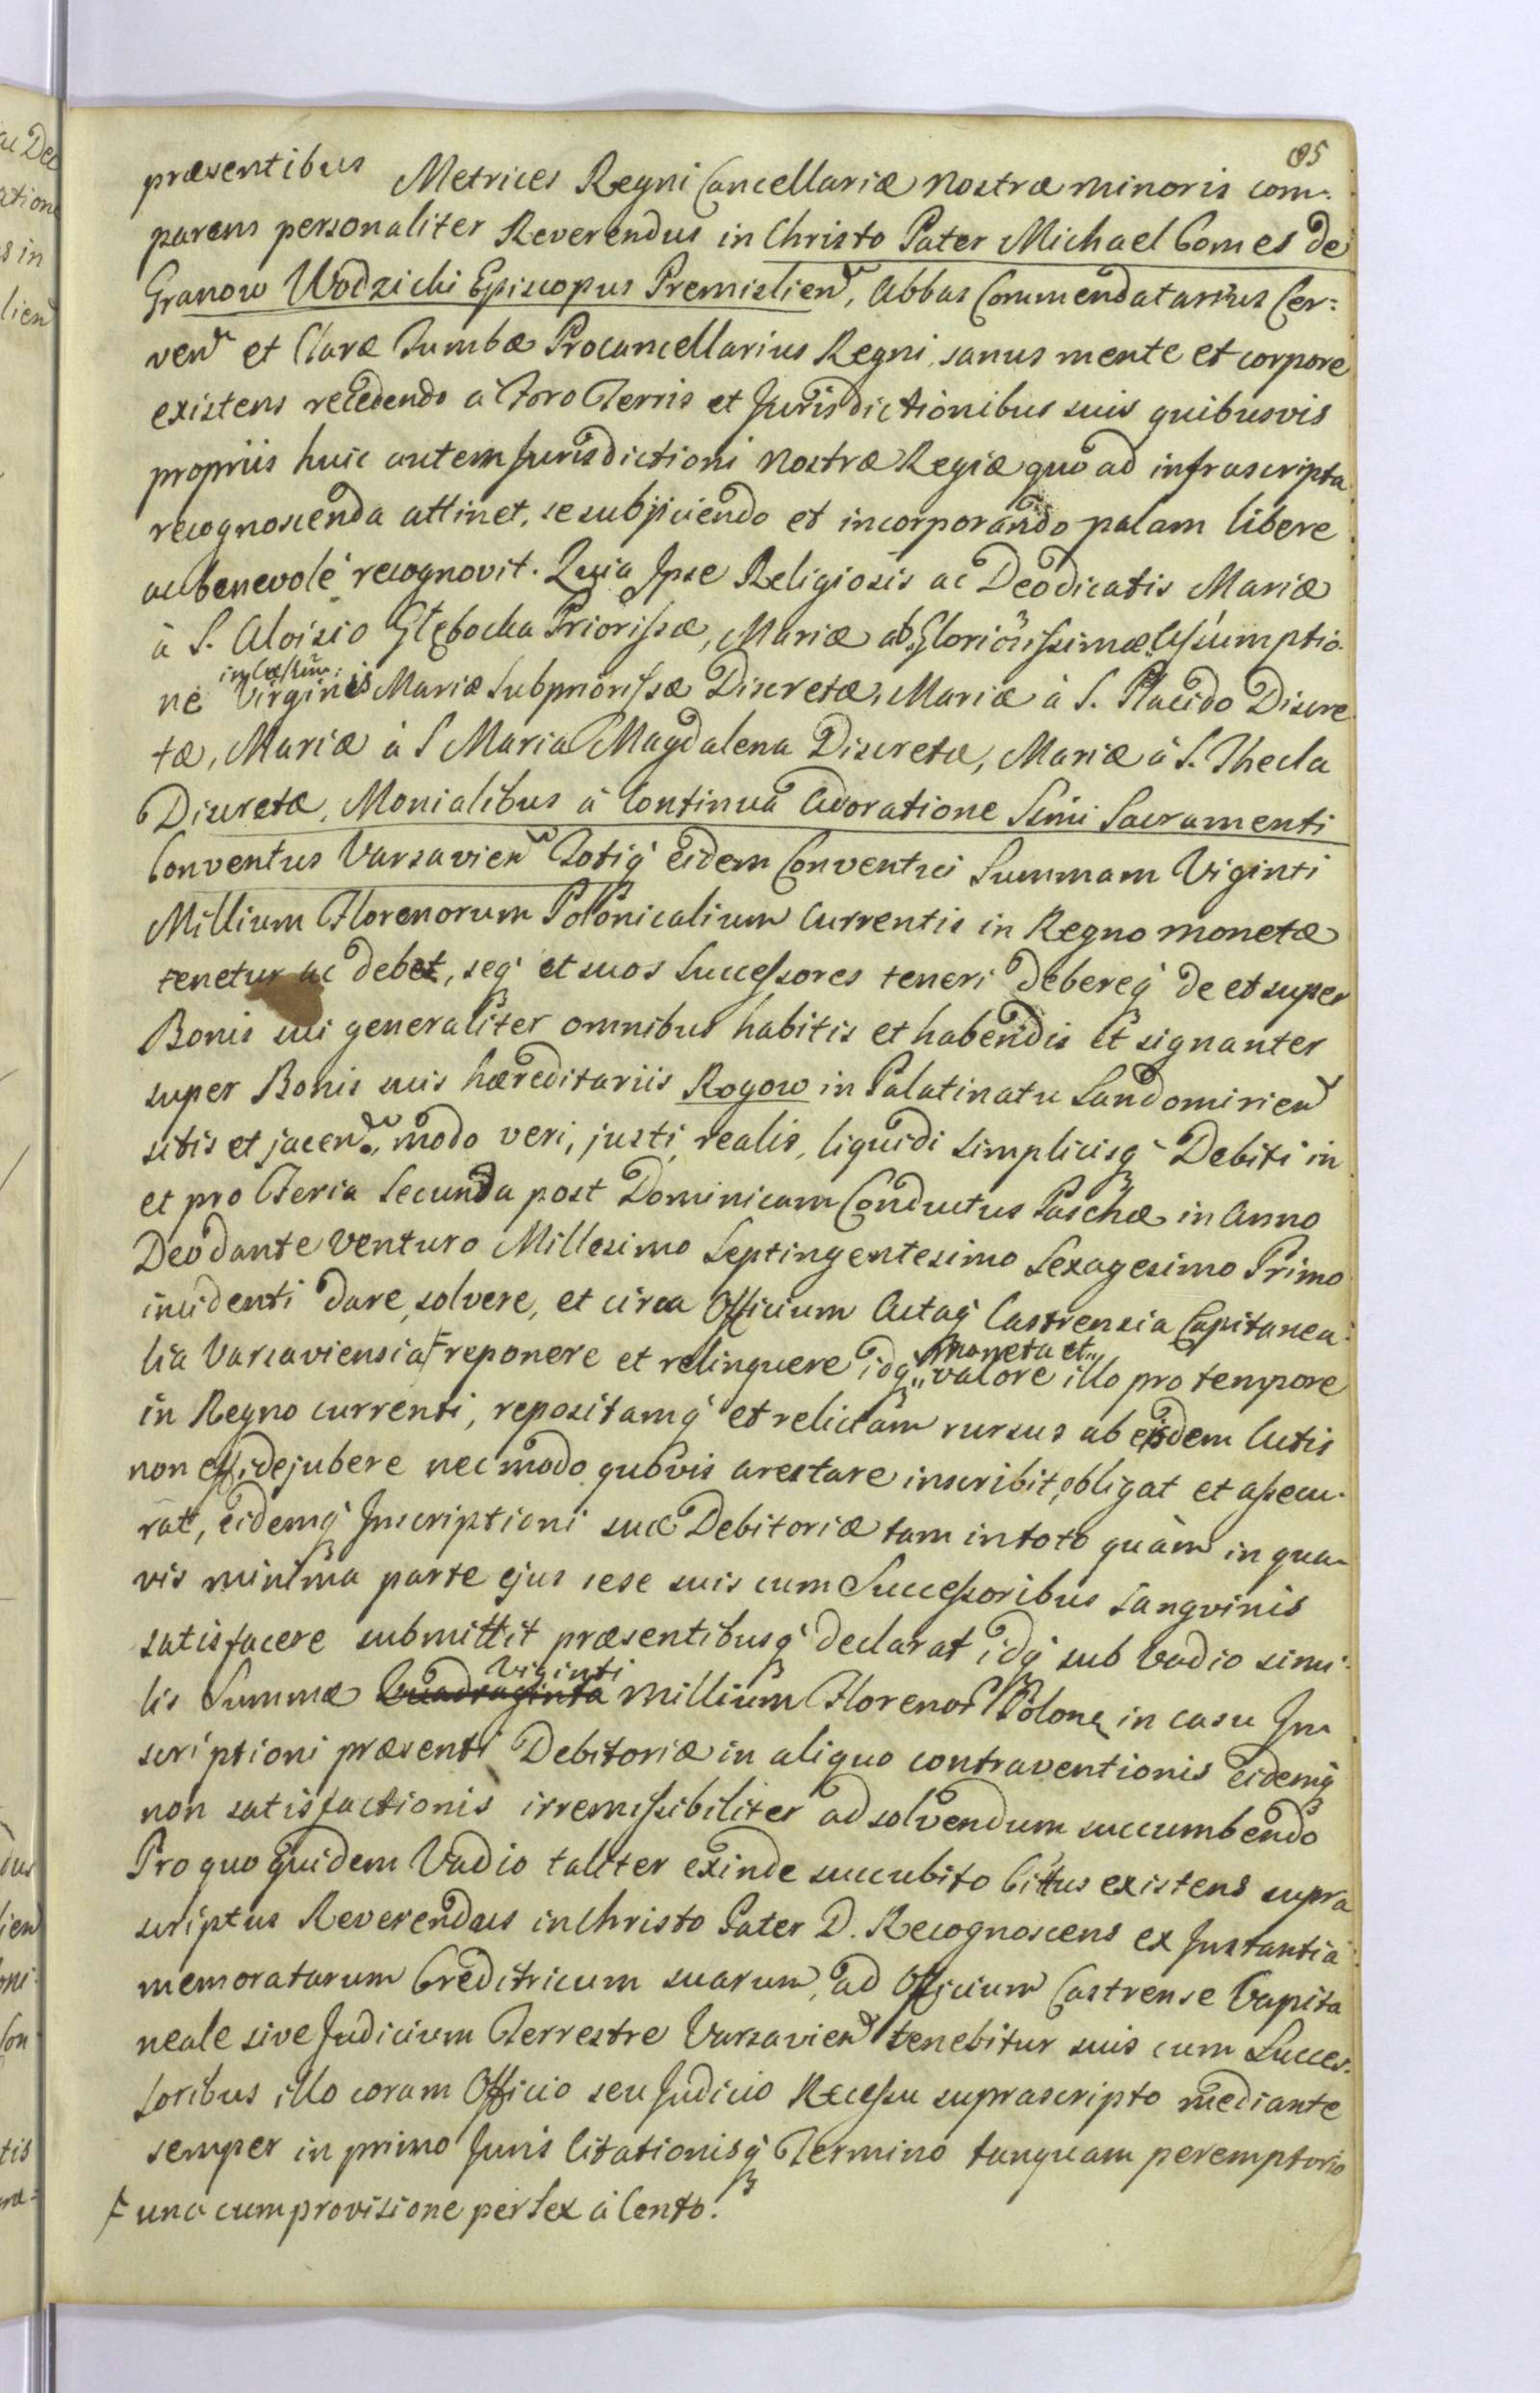 85
præsentibus Metrices Regni Cancellariæ Nostræ minoris com-
parens personaliter Reverendus in Christo Pater Michael Comes de
Granow Wodzicki Episcopus Premislien, Abbas Commendatarius Cer:
ven et Claræ Tumbæ Procancellarius Regni, sanus mente et corpore
existens recedendo à Foro Terris et Jurisdictionibus suis quibusvis
propriis huic autem Jurisdictioni Nostræ Regiæ quo ad infrascripta
recognoscenda attinet, se subjiciendo et incorporando palam libere
ac benevolè recognovit. Quia Ipse Religiosis ac Deodicatis Mariæ
à S. Aloisio Głębocka Priorissæ, Mariæ ab Gloriosissimæ Assumptio-
ne Virginis Mariæ Subpriorissæ Discretæ, Mariæ à S. Placido Discre
tæ, Mariæ à S Maria Magdalena Discretæ, Mariæ à S. Thecla
Discretæ, Monialibus à Continua Adoratione Ssmi Sacramenti
Conventus Varsavien Totiq́ eidem Conventui Summam Viginti
Millium Florenorum Polonicalium Currentis in Regno monetæ
tenetur ac debet, seq́ et suos Successores teneri debereq́ de et super
Bonis sui generaliter omnibus habitis et habendis et signanter
super Bonis suis hæreditariis Rogow in Palatinatu Sandomirien
sitis et jacen. modo veri, justi, realis, liquidi simplicisq́ Debiti in
et pro Feria Secunda post Dominicam Conductus Paschæ in Anno
Deo dante venturo Millesimo Septingentesimo Sexagesimo Primo
incidenti dare, solvere, et circa Officium Actaq́ Castrensia Capitanea-
lia Varsaviensia F reponere et relinquere idq́ moneta et valore illo pro tempore
in Regno currenti, repositamq́ et relictam rursus ab eisdem Actis
non effidejubere nec modo quovis arestare inscribit, obligat et assecu-
rat, eidemq́ Inscriptioni suæ Debitoriæ tam in toto quàm in qua-
vis minima parte ejus sese suis cum Successoribus sangvinis
satisfacere submittit præsentibusq́ declarat idq́ sub vadio simi-
lis Summæ Quadraginta Viginti Millium Florenor Polon in casu In
scriptioni præsenti Debitoriæ in aliquo contraventionis eidemq́
non satisfactionis irremissibiliter ad solvendum succumbendo
Pro quo quidem Vadio taliter exinde succubito Cittus existens supra
scriptus Reverendus in Christo Pater D. Recognoscens ex Instantia
memoratarum Creditricum suarum, ad Officium Castrense Capita
neale sive Judicium Terrestre Varsavien tenebitur suis cum Succes-
soribus illo coram Officio seu Judicio Recessu suprascripto mediante
semper in primo Juris Citationisq́ Termino tanquam peremptorio
F una cum provisione per Sex à Cento.